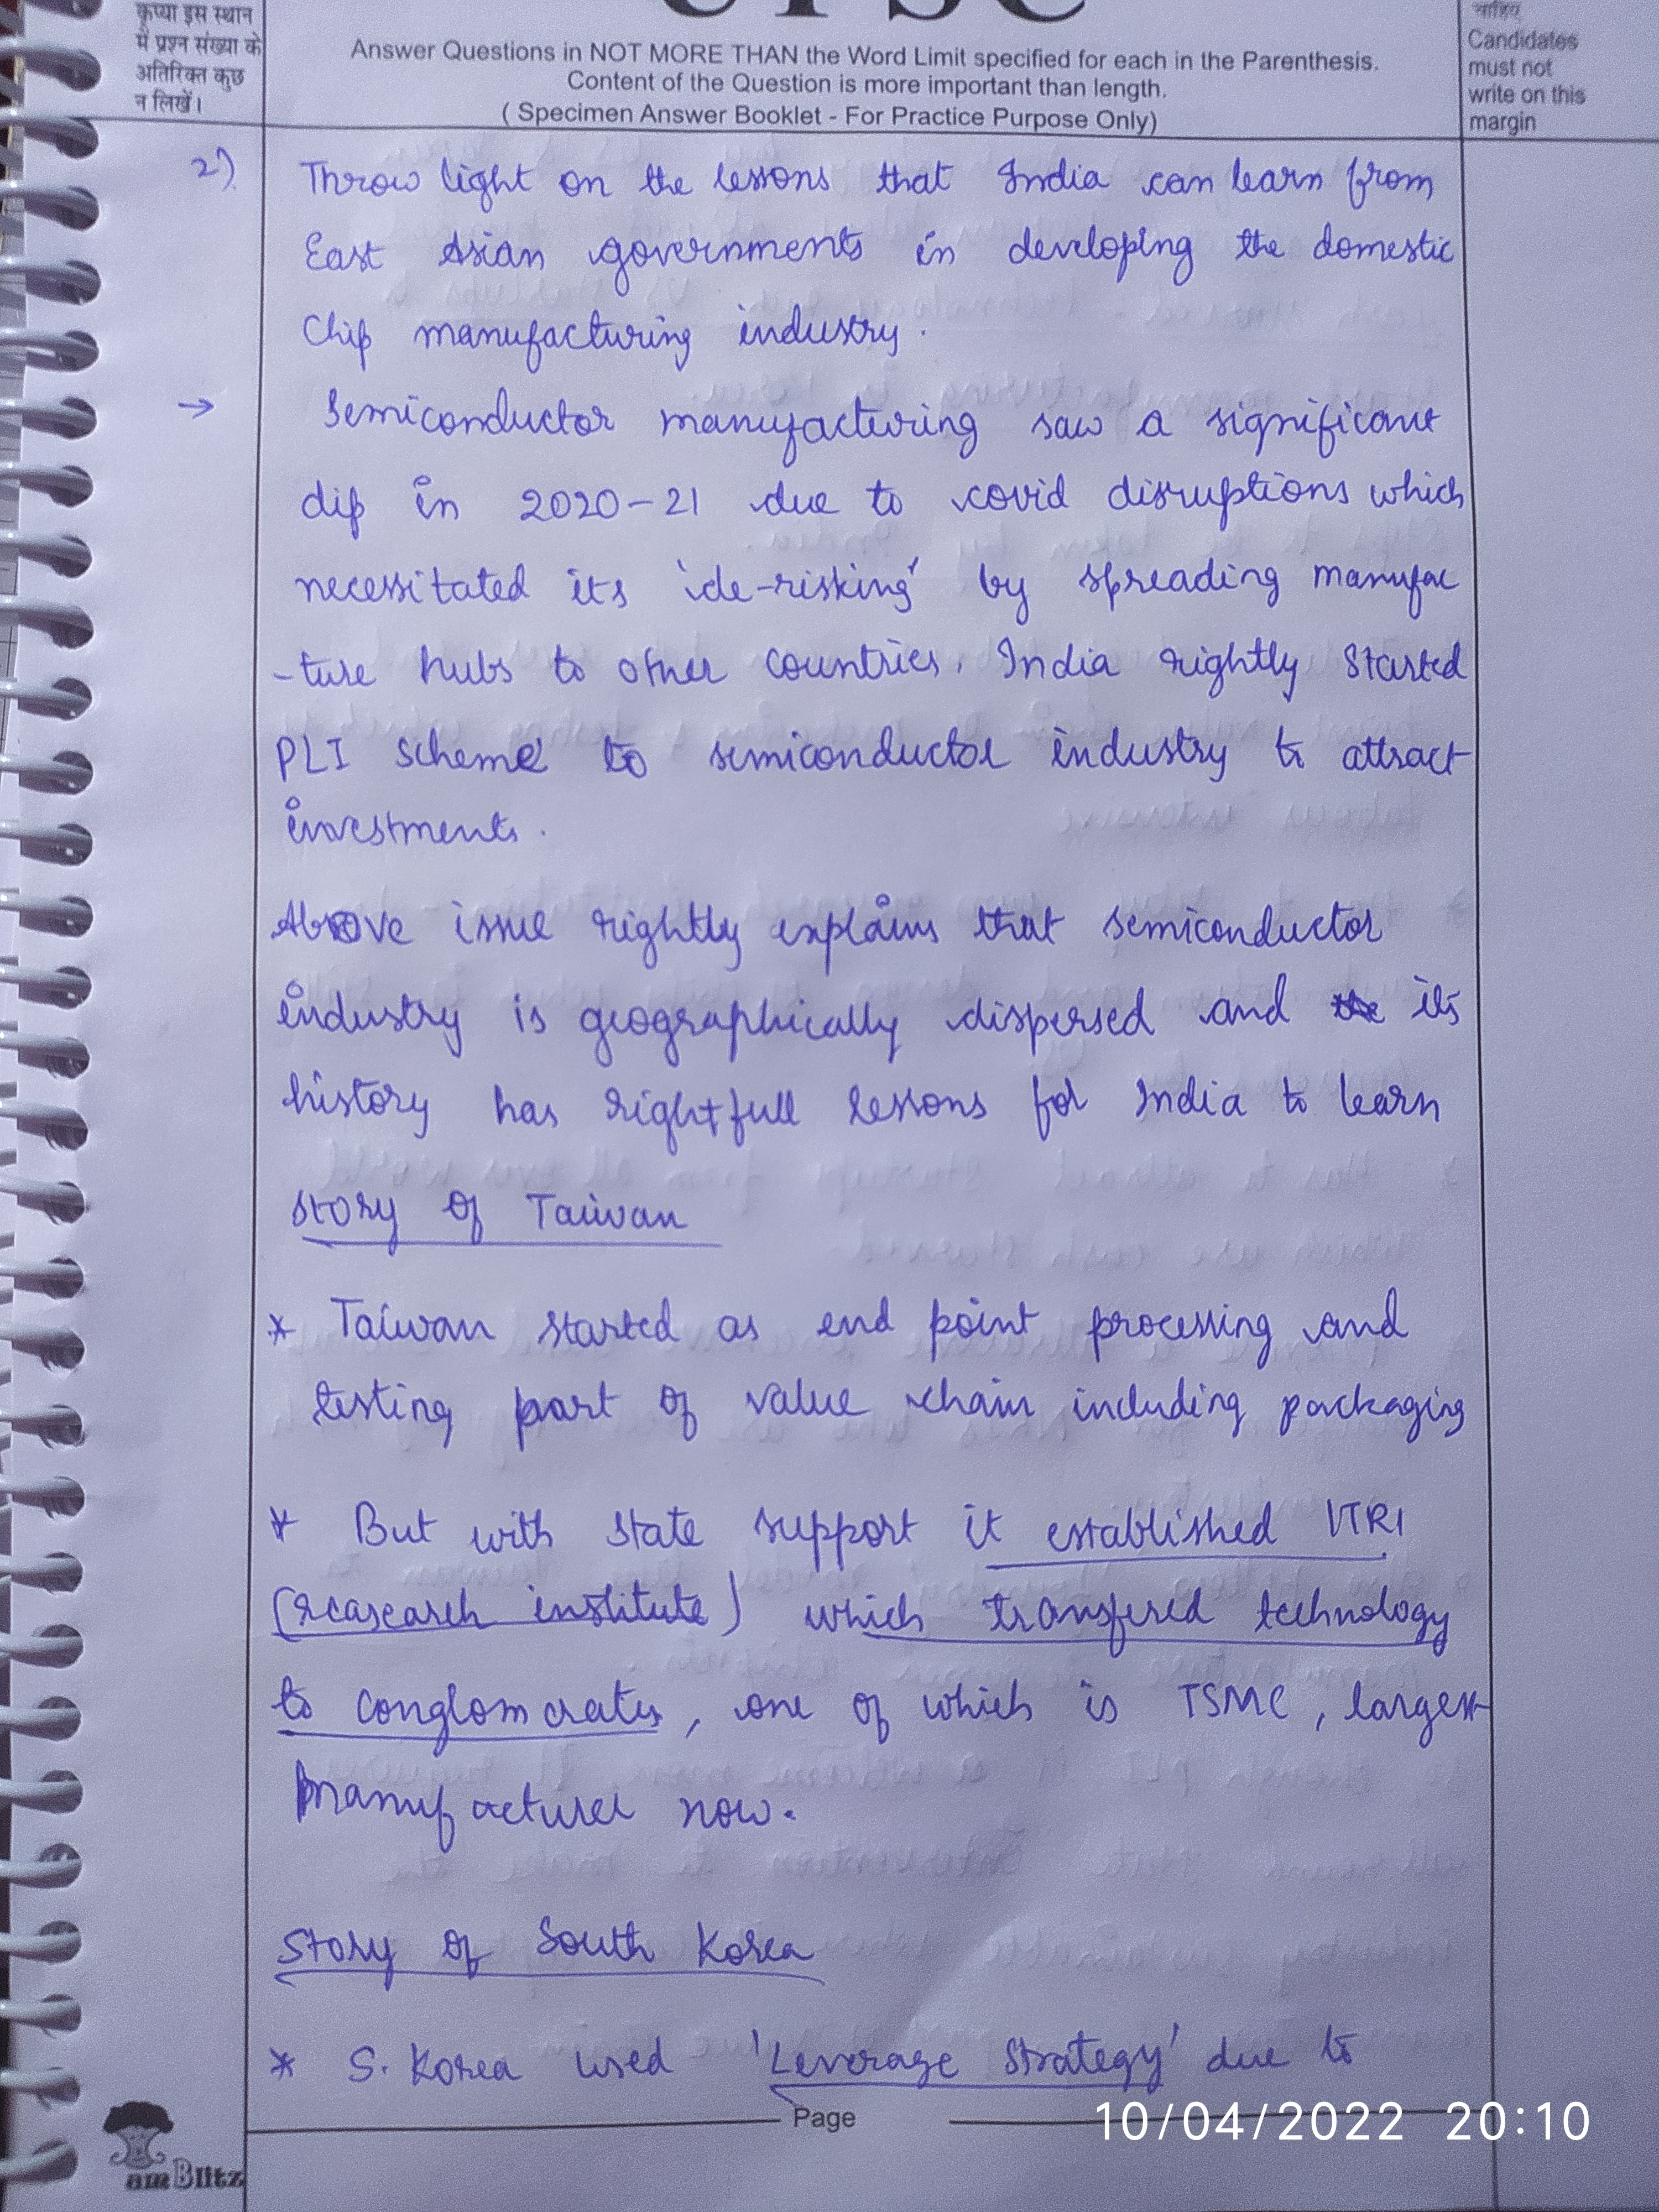 कृप्या इस स्थान
में प्रश्न संख्या के
अतिरिक्त कुछ
न लिखें।
UPSC
Answer Questions in NOT MORE THAN the Word Limit specified for each in the Parenthesis.
Content of the Question is more important than length.
( Specimen Answer Booklet - For Practice Purpose Only)
चाहिए
Candidates
must not
write on this
margin
2) Throw light on the lessons that India can learn from
East Asian governments in developing the domestic
Chip manufacturing industry.
→ Semiconductor manufacturing saw a significant
dip in 2020-21 due to covid disruptions which
necessitated its 'de-risking' by spreading manufac
-ture hubs to other countries. India rightly started
PLI scheme to semiconductor industry to attract
investments.
Above issue rightly explains that semiconductor
industry is geographically dispersed and its
history has rightfull lessons for India to learn
Story of Taiwan
* Taiwan started as end point processing and
testing part of value chain including packaging
* But with state support it established ITRI
(reasearch institute) which transfered technology
to conglomerates, one of which is TSMC, largest
manufacturer now.
Story of South Korea
* S. Korea used 'Leverage Strategy' due to
Page
10/04/2022 20:10
amBlitz